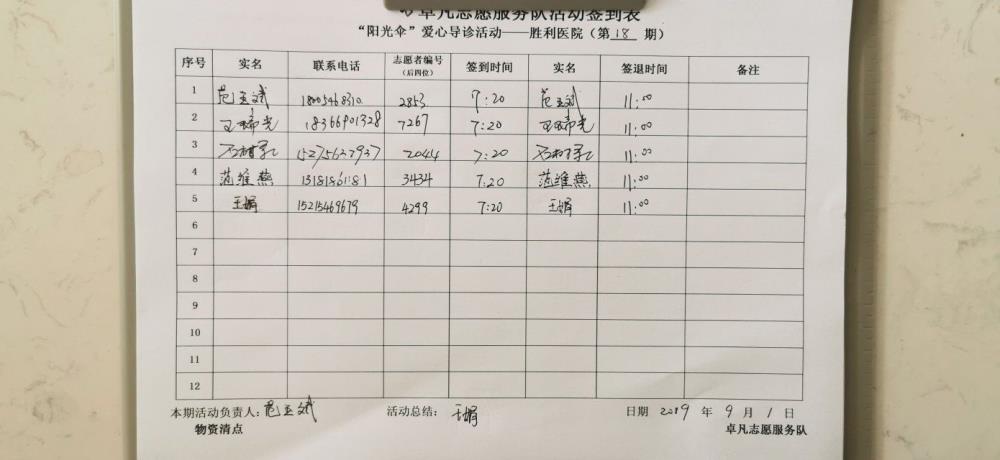 卓凡志愿服务队活动签到表
“阳光伞”爱心导诊活动——胜利医院（第 18 期）
序号 实名 联系电话 志愿者编号（后四位） 签到时间 实名 签退时间 备注
1 范玉斌 18005468310 2853 7:20 范玉斌 11:00
2 光 18366901328 7267 7:20 光 11:00
3 15275627937 2044 7:20 11:00
4 范维燕 13181861181 3434 7:20 范维燕 11:00
5 王娟 15215469679 4299 7:20 王娟 11:00
6
7
8
9
10
11
12
本期活动负责人：范玉斌 活动总结：王娟 日期 2019 年 9 月 1 日
物资清点 卓凡志愿服务队